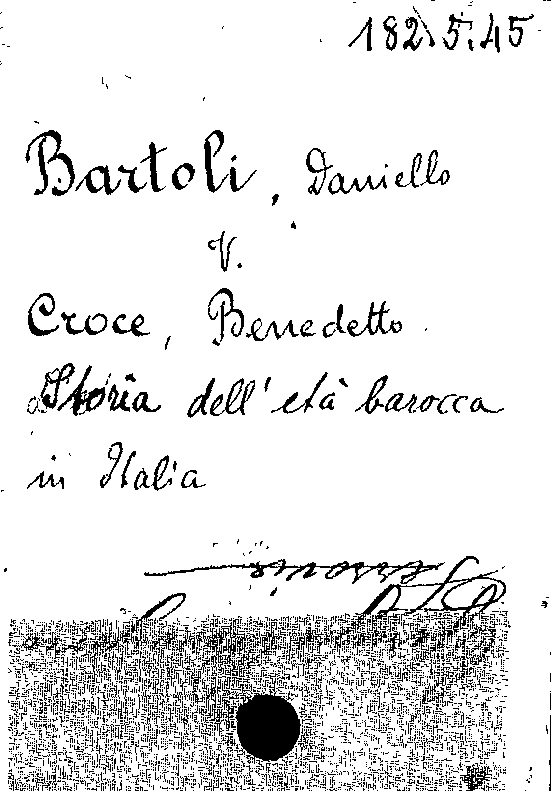 182.5.45
Bartoli, Daniello
V.
Croce, Benedetto
Storia dell'età barocca
in Italia